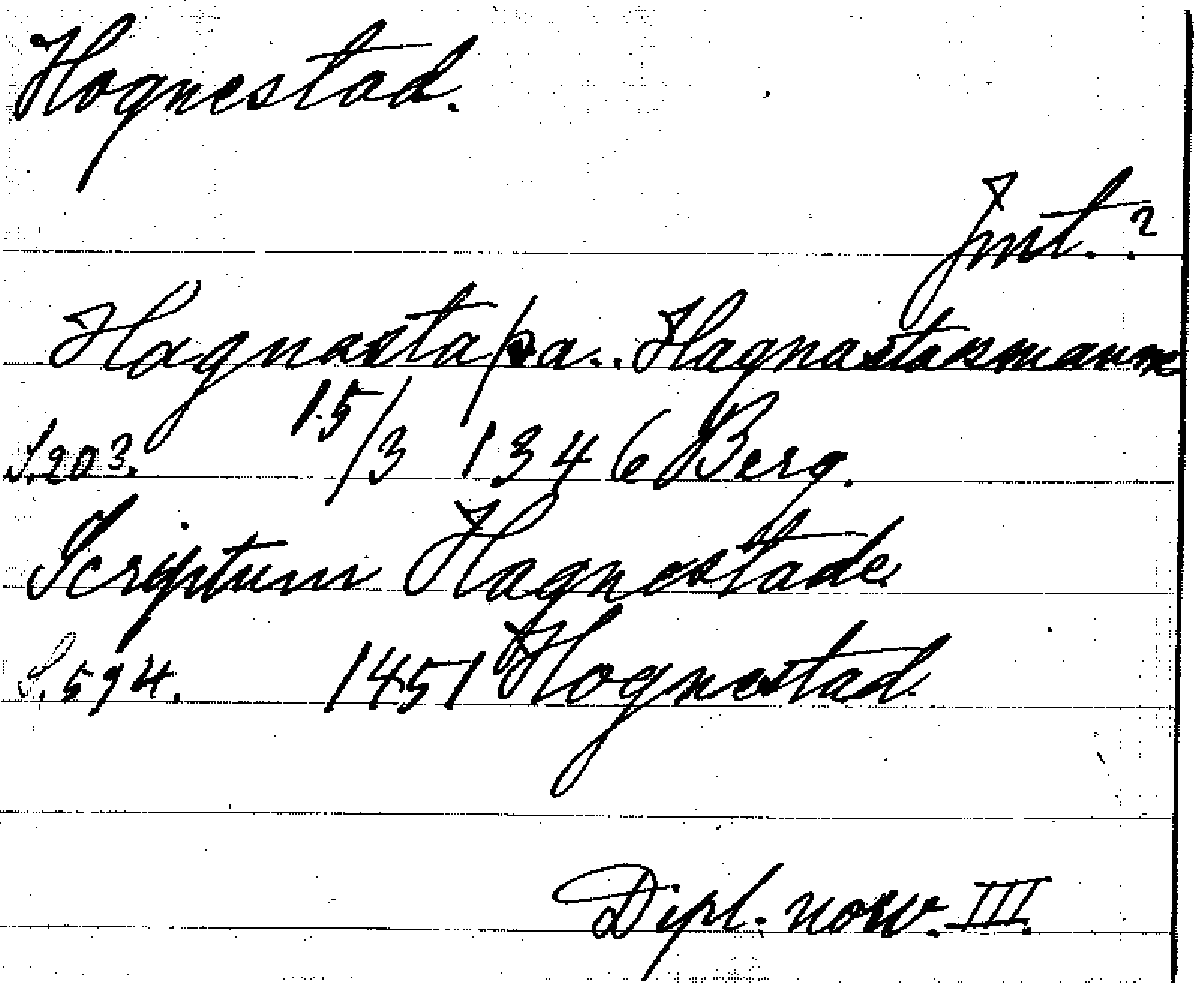 Hognestad.
Jmt.?
Hagnastaþa. Hagnastaksmanne
S.203. 15/3 1346 Berg.
Scriptum Hagnestade.
S.594. 1451 Hognestad.
Dipl. norv. III.